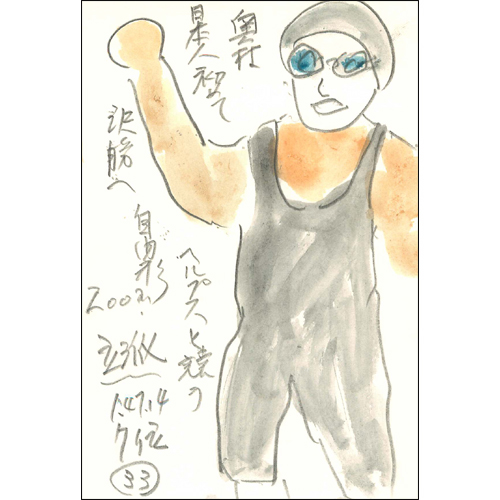 奥村
日本人初めて
決勝へ
自由形
200m.
ヘルプスと競う
1.47.14
7位
33